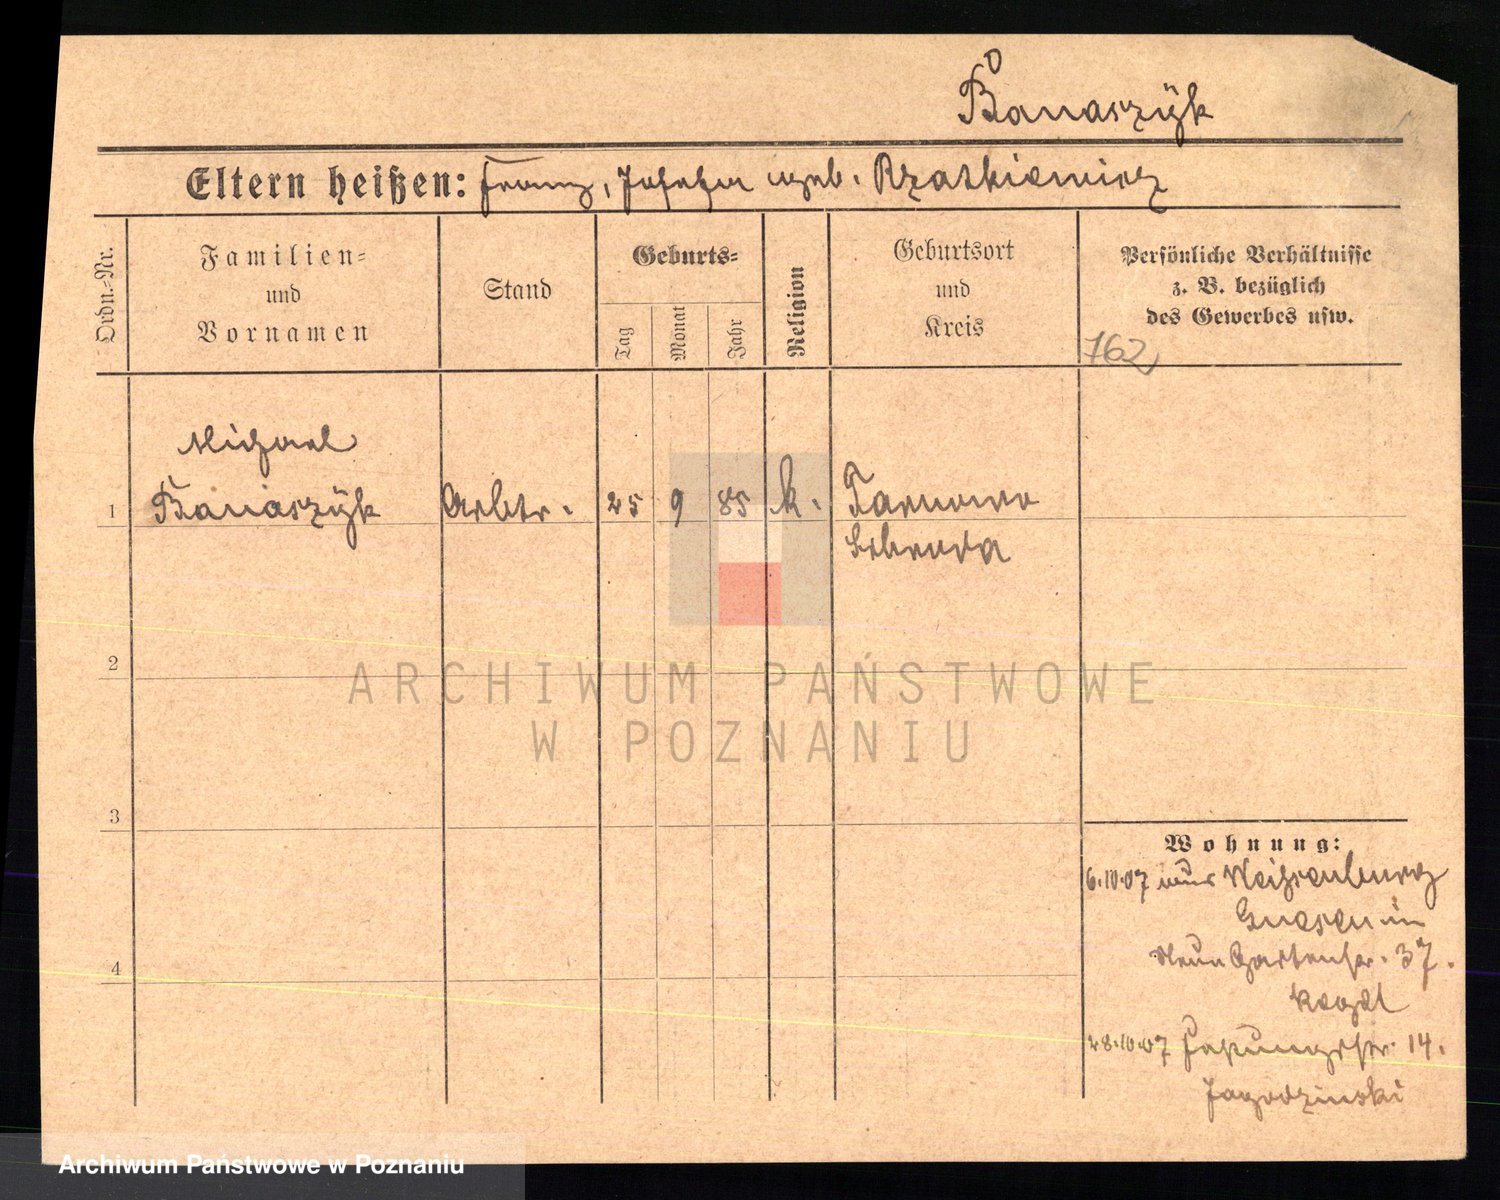 Banaszÿk
Eltern heißen: Franz, Josefa geb. Rzatkiewicz
Ordn.-Nr.
Familien-
und
Vornamen
Stand
Geburts-
Tag
Monat
Jahr
Religion
Geburtsort
und
Kreis
Persönliche Verhältnisse
z. B. bezüglich
des Gewerbes usw.
162
Michael
1 Banaszÿk Arbtr. 25 9 85 k. Tarnowo
Schroda
2
ARCHIWUM PAŃSTWOWE
W POZNANIU
3
Wohnung:
6.10.07 aus Weißenburg
Gnesen in
Neue Gartenstr. 37.
4
28.10.07 14.
Jagodzinski
Archiwum Państwowe w Poznaniu